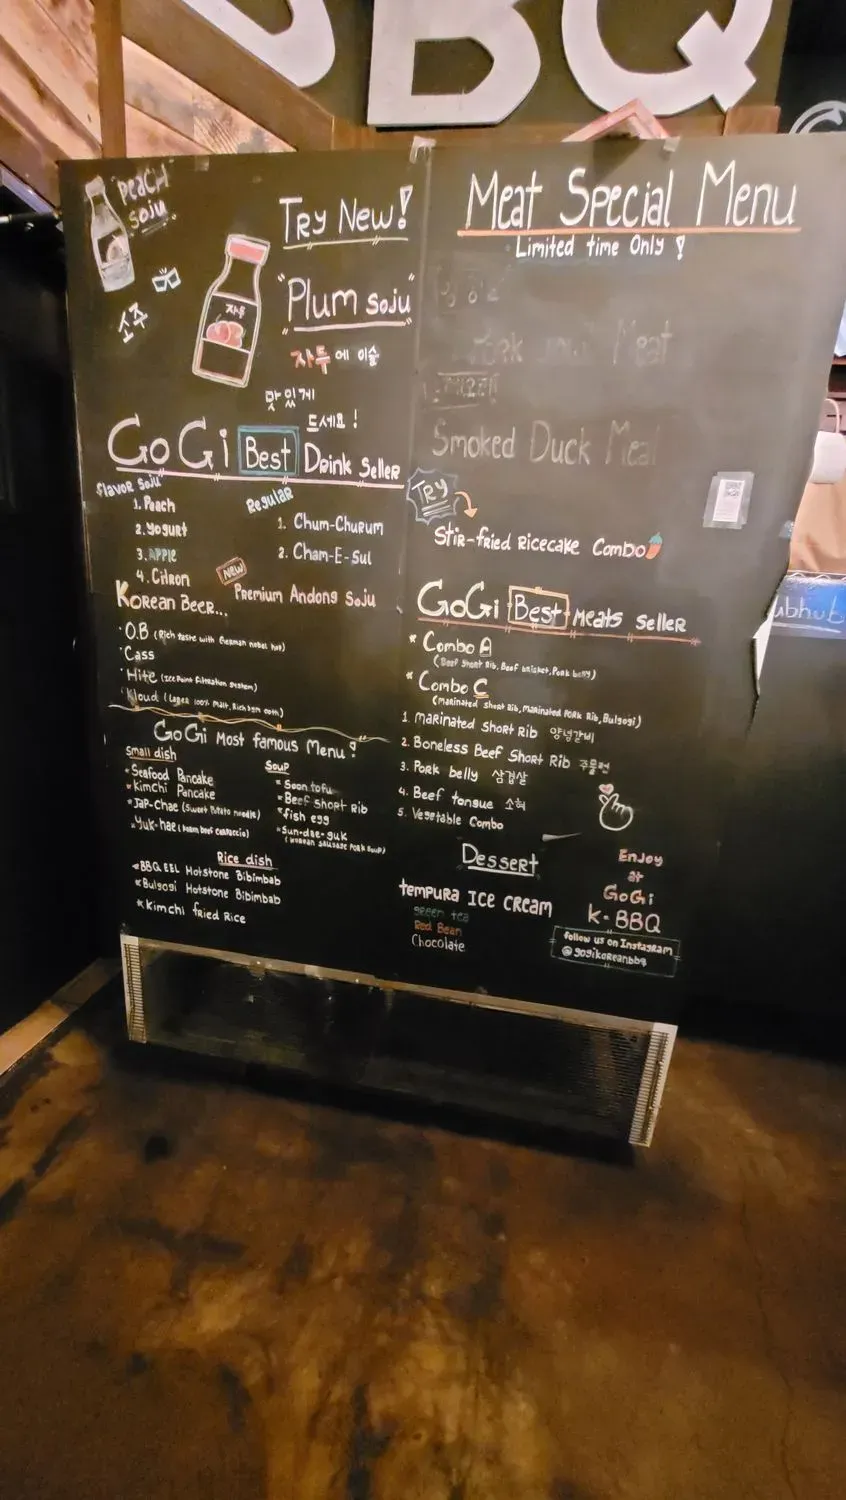 BBQ
"Peach"
soju
소주
Try New!
"Plum soju"
자두
자두에 이슬
맛있게
드세요!
GoGi Best Drink Seller
Flavor Soju
1. Peach
2. Yogurt
3. APPLE
4. Citron
Regular
1. Chum-Churum
2. Cham-E-Sul
New
Premium Andong Soju
Korean Beer...
O.B (Rich taste with German nobel hop)
Cass
Hite (Ice Point Filtration System)
Kloud (Lager 100% Malt, Rich
GoGi Most famous Menu!
Small dish
* Seafood Pancake
* Kimchi Pancake
* Jap-Chae (Sweet Potato noodle)
* Yuk-hae
Soup
* Soon tofu
* Beef Short Rib
* fish egg
* Sun-dae-guk
(Korean Sausage Pork Soup)
Rice dish
* BBQ EEL Hotstone Bibimbab
* Bulgogi Hotstone Bibimbab
* Kimchi fried Rice
Meat Special Menu
Limited time Only!
Pork Meat
Smoked Duck Meal
TRY
Stir-fried Ricecake Combo
GoGi Best Meats Seller
* Combo A
(Beef Short Rib, Beef brisket, Pork belly)
* Combo C
(Marinated Short Rib, Marinated Pork Rib, Bulgogi)
1. Marinated Short Rib 양념갈비
2. Boneless Beef Short Rib 주물럭
3. Pork belly 삼겹살
4. Beef tongue 소혀
5. Vegetable Combo
Dessert
tempura ICE CREAM
green tea
Red Bean
Chocolate
Enjoy
at
GoGi
K-BBQ
follow us on Instagram
@gogikoreanbbq
ubhub